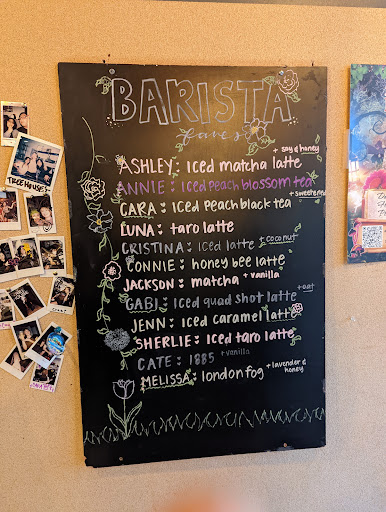 BARISTA
faves
ASHLEY: iced matcha latte + soy & honey
ANNIE: iced peach blossom tea
CARA: iced peach black tea + sweetened
LUNA: taro latte
CRISTINA: iced latte + coconut
CONNIE: honey bee latte
JACKSON: matcha + vanilla
GABI: iced quad shot latte + oat
JENN: iced caramel latte
SHERLIE: iced taro latte
CATE: 1885 + vanilla
MELISSA: london fog + lavender & honey
TREEHOUSE